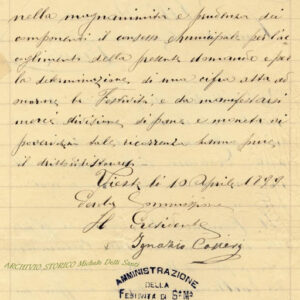 nella magnanimità e prudenza dei
componenti il consesso Municipale per l'ac
coglimento della presente domanda e per
la determinazione di una cifra atta ad
la Festività, e da manifestarsi
divisione di pane e moneta ai
ricorrenza hanno pure
il diritto
Vieste li 10 Aprile 1899
Commissione
Il Presidente
Ignazio
ARCHIVIO STORICO Michele Delli Santi
AMMINISTRAZIONE
DELLA
FESTIVITÀ DI Sª Mª